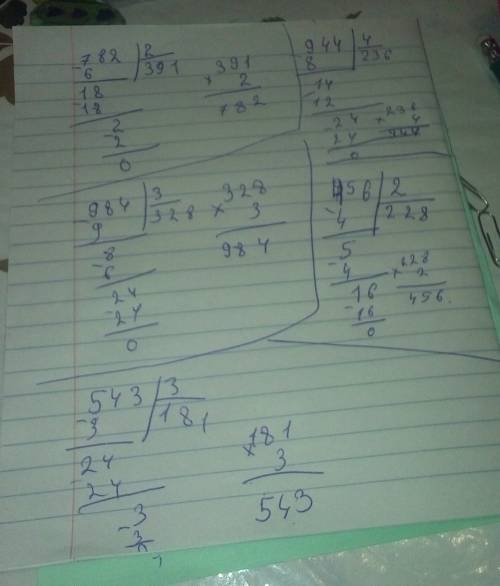 782 | 2
- 6 | 391
18
- 18
2
- 2
0
391
× 2
782
944 | 4
- 8 | 236
14
- 12
24
- 24
0
236
× 4
944
984 | 3
- 9 | 328
8
- 6
24
- 24
0
328
× 3
984
456 | 2
- 4 | 228
5
- 4
16
- 16
0
228
× 2
456
543 | 3
- 3 | 181
24
- 24
3
- 3
181
× 3
543